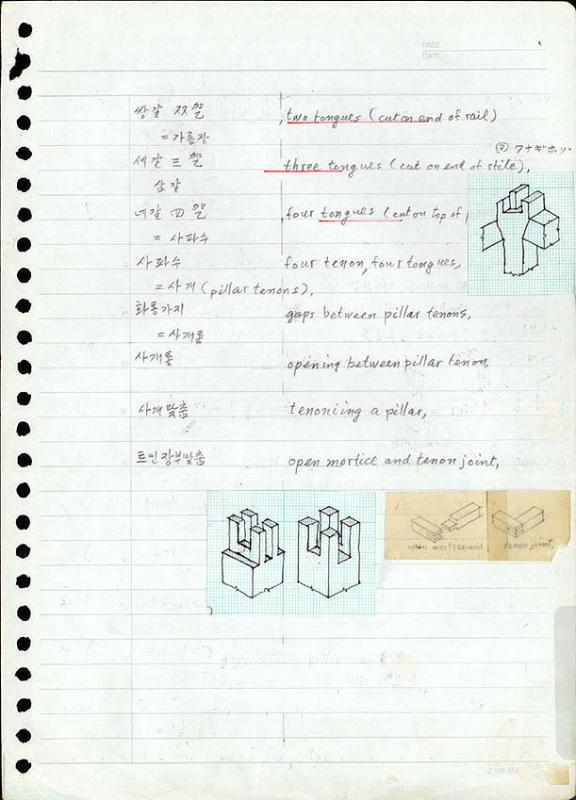 쌍갈 双깔 ,two tongues (cut on end of rail)
=가름장
세갈 三깔 three tongues (cut on end of stile),
삼갈
네갈 四깔 ,four tongues (cut on top of
= 사파수
사파수 four tenon, four tongues,
=사개 (pillar tenons),
화통가지 gaps between pillar tenons,
사개통 opening between pillar tenon,
사개맞춤 tenoniing a pillar,
트인장부맞춤 open mortice and tenon joint,
open mortice and tenon joint,